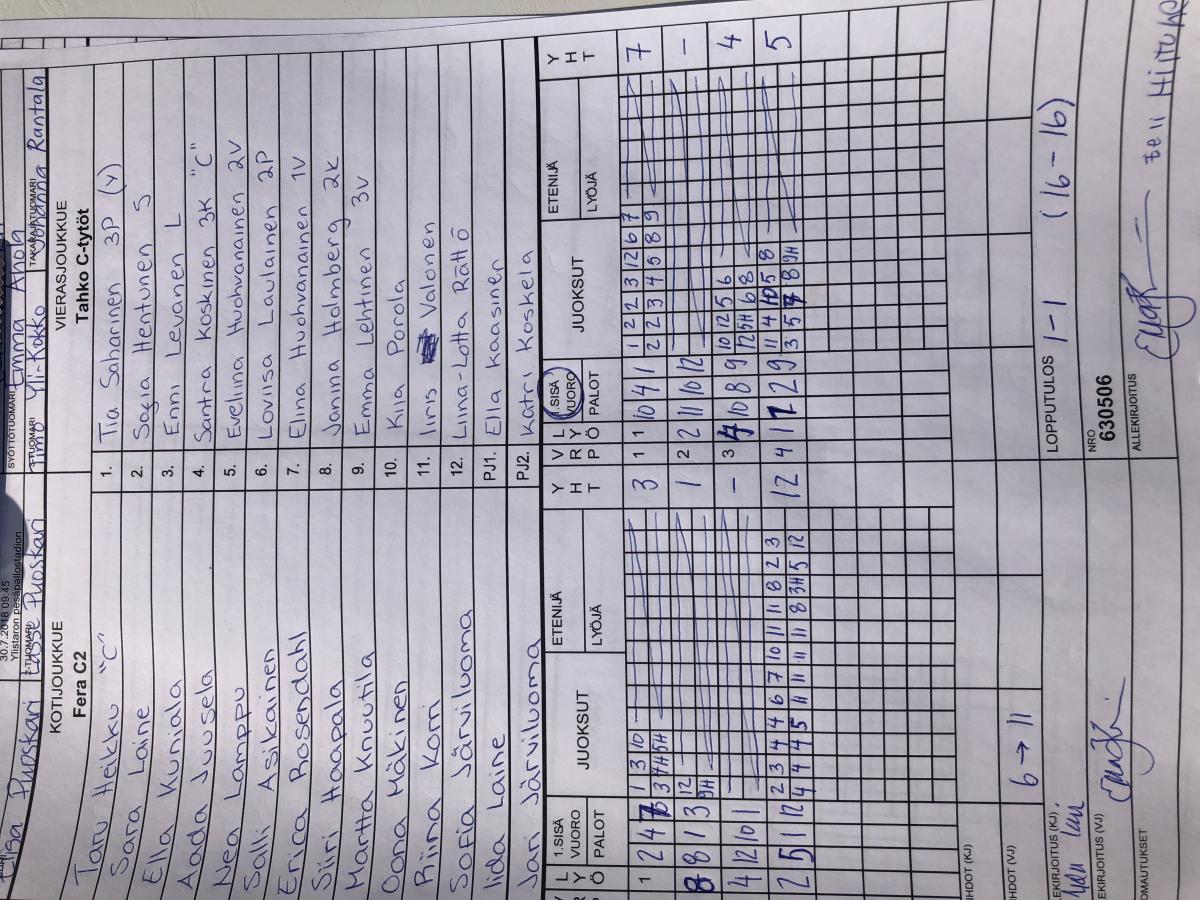 30.7.2018 09:45
Ylistaron pesäpallostadion
SYÖTTÖTUOMARI Emma Ahola
Puoskari Lasse Puoskari
2-TUOMARI
TAKARAJATUOMARI Johanna Rantala
KOTIJOUKKUE VIERASJOUKKUE
Fera C2 Tahko C-tytöt
Taru Heikku "C" 1. Tia Saharinen 3P (V)
Sara Laine 2. Sagia Hentunen S
Ella Kuniala 3. Enni Levanen L
Aada Juusela 4. Santra Koskinen 3K "C"
Nea Lamppu 5. Evelina Huohvanainen 2V
Salli Asikainen 6. Loviisa Laulainen 2P
Erica Rosendahl 7. Elina Huohvanainen 1V
Siiri Haapala 8. Janina Holmberg 2K
Martta Knuutila 9. Emma Lehtinen 3V
Oona Mäkinen 10. Kiia Porola
Riina Korri 11. Iiris Valonen
Sofia Järviluoma 12. Liina-Lotta Rättö
Iida Laine PJ1. Ella Kaasinen
Jari Järviluoma PJ2. Katri Koskela
1.SISÄ VUORO PALOT JUOKSUT ETENIJÄ LYÖJÄ YHT VRO LYÖ 1.SISÄ VUORO PALOT JUOKSUT ETENIJÄ LYÖJÄ YHT
1 2 4 1 3 10 3 1 1 10 4 1 1 2 2 3 12 6 7 7
3 7H 5H 2 2 3 4 5 8 9
8 8 1 3 12 1 2 2 11 10 12 –
9H
4 12 10 1 – 3 4 10 8 9 10 12 5 6 4
12 5H 6 8
2 5 11 12 2 3 4 4 6 7 10 11 11 8 2 3 12 4 1 12 2 9 11 4 10 5 8 5
4 4 4 5 11 11 11 11 8 3H 5 12 3 5 7 8 9H
IHDOT (KJ)
IHDOT (VJ) 6 → 11
LEKIRJOITUS (KJ). LOPPUTULOS 1–1 (16–16)
LEKIRJOITUS (VJ) NRO 630506
OMAUTUKSET ALLEKIRJOITUS